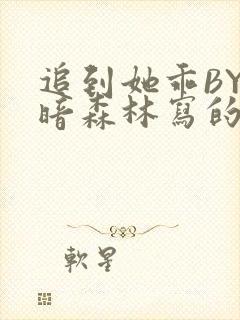 追到她乖BY
暗森林寫的
軟星